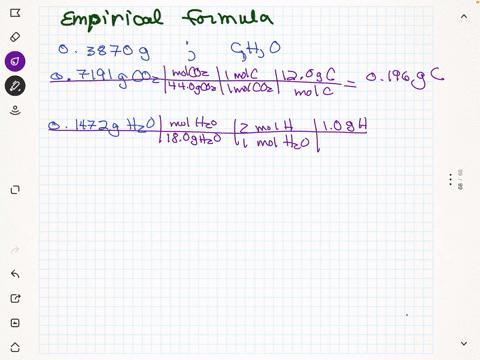 Empirical formula
0.3870 g ; C, H, O
0.7191 g CO2 | mol CO2 / 44.0 g CO2 | 1 mol C / 1 mol CO2 | 12.0 g C / mol C = 0.196 g C
0.1472 g H2O | mol H2O / 18.0 g H2O | 2 mol H / 1 mol H2O | 1.0 g H